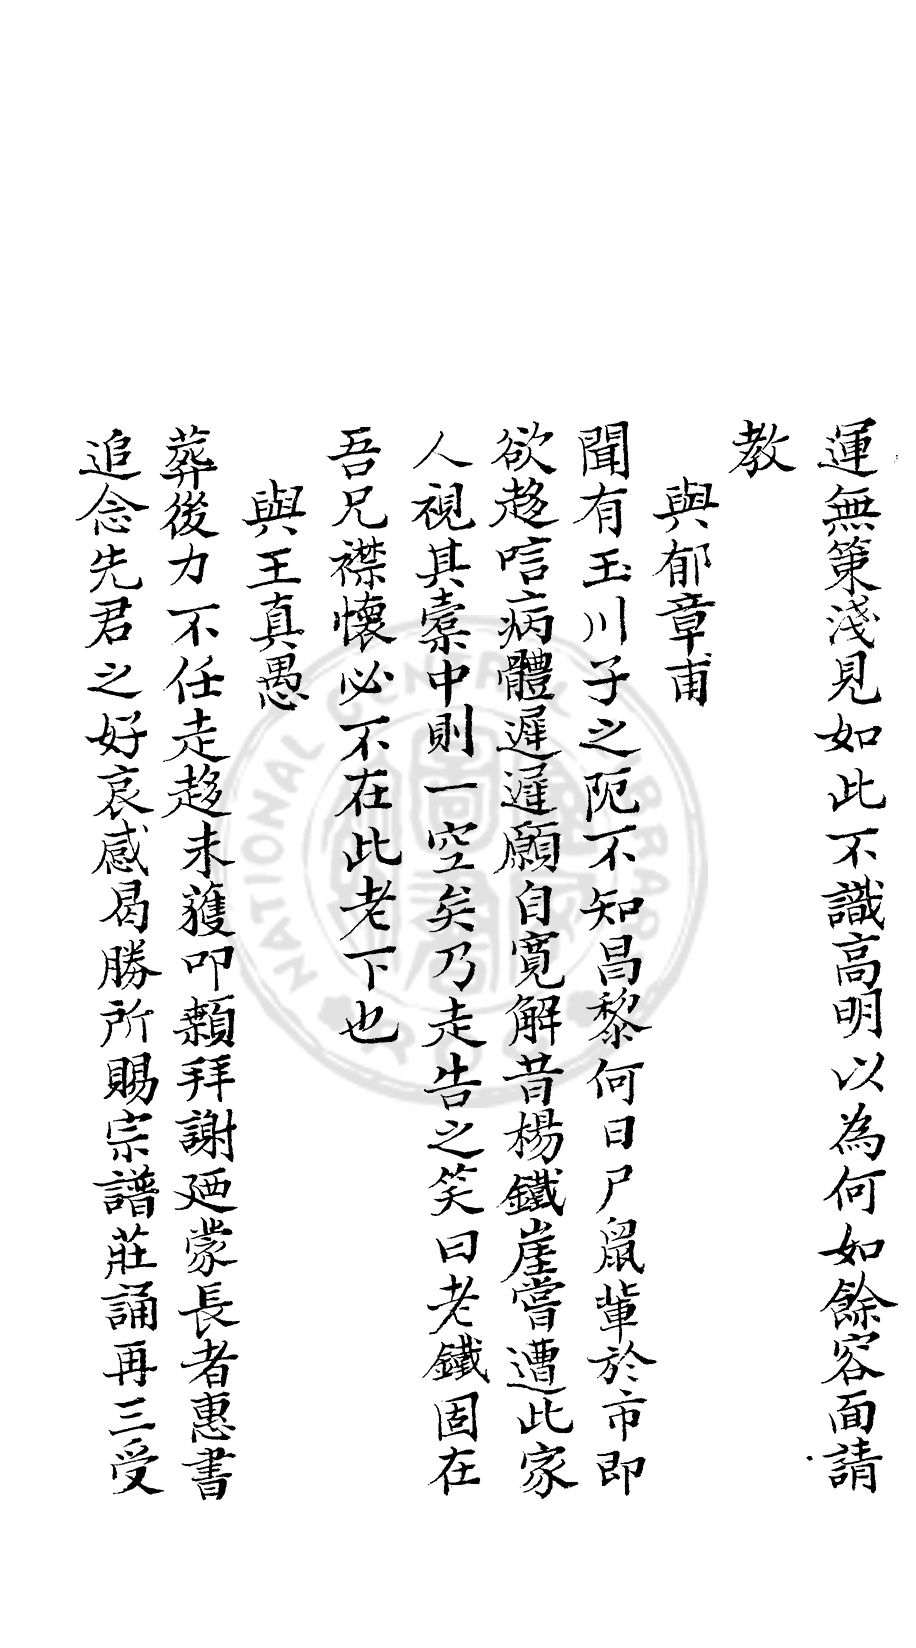 運無策淺見如此不識高明以為何如餘容面請
教
與郁章甫
聞有玉川子之阨不知昌黎何日尸鼠輩於市即
欲趍唁病體遲遲願自寬解昔楊鐵崖嘗遭此家
人視其橐中則一空矣乃走告之笑曰老鐵固在
吾兄襟懷必不在此老下也
與王真愚
葬後力不任走趍未獲叩顙拜謝廼蒙長者惠書
追念先君之好哀感曷勝所賜宗譜莊誦再三受
NATIONAL CENTRAL LIBRARY